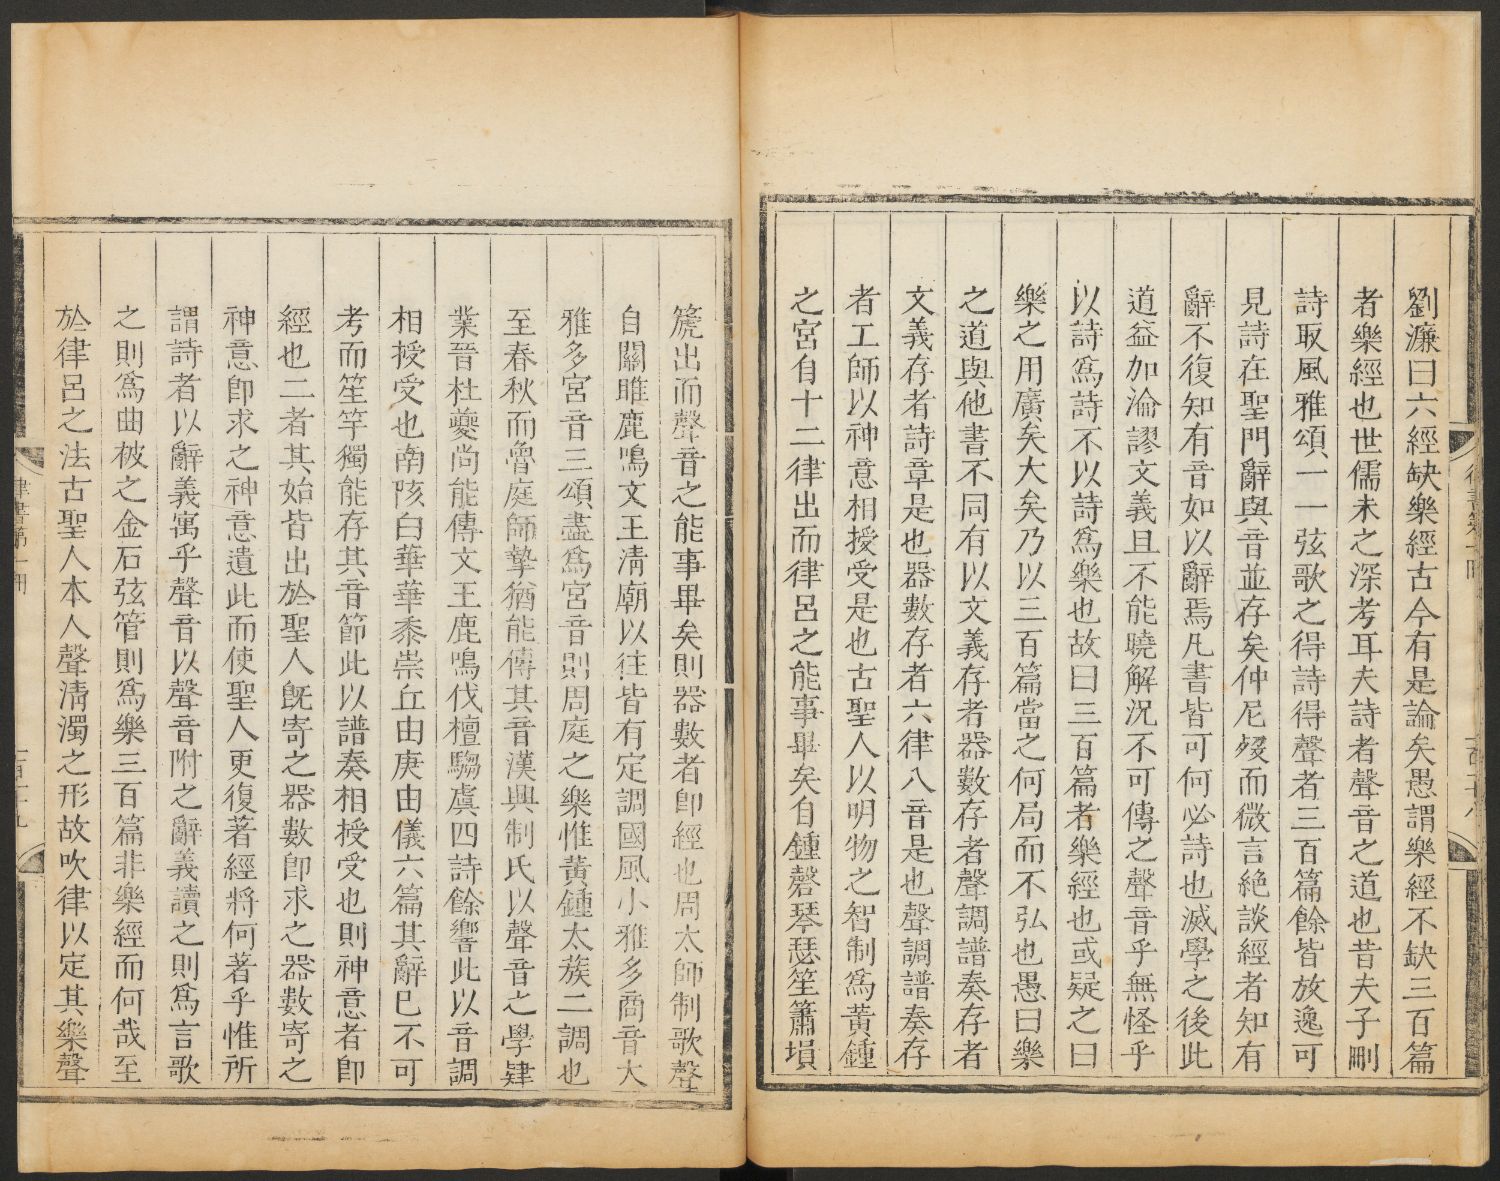 劉濂曰六經缺樂經古今有是論矣愚謂樂經不缺三百篇
者樂經也世儒未之深考耳夫詩者聲音之道也昔夫子刪
詩取風雅頌一一弦歌之得詩得聲者三百篇餘皆放逸可
見詩在聖門辭與音並存矣仲尼歿而微言絕談經者知有
辭不復知有音如以辭焉凡書皆可何必詩也滅學之後此
道益加淪謬文義且不能曉解況不可傳之聲音乎無怪乎
以詩爲詩不以詩爲樂也故曰三百篇者樂經也或疑之曰
樂之用廣矣大矣乃以三百篇當之何局而不弘也愚曰樂
之道與他書不同有以文義存者器數存者聲調譜奏存者
文義存者詩章是也器數存者六律八音是也聲調譜奏存
者工師以神意相授受是也古聖人以明物之智制爲黃鍾
之宮自十二律出而律呂之能事畢矣自鍾磬琴瑟笙簫塤
箎出而聲音之能事畢矣則器數者卽經也周太師制歌聲
自關雎鹿鳴文王清廟以往皆有定調國風小雅多商音大
雅多宮音三頌盡爲宮音則周庭之樂惟黃鍾太蔟二調也
至春秋而魯庭師摯猶能傳其音漢興制氏以聲音之學肄
業晉杜夔尚能傳文王鹿鳴伐檀騶虞四詩餘響此以音調
相授受也南陔白華華黍崇丘由庚由儀六篇其辭已不可
考而笙竽獨能存其音節此以譜奏相授受也則神意者卽
經也二者其始皆出於聖人旣寄之器數卽求之器數寄之
神意卽求之神意遺此而使聖人更復著經將何著乎惟所
謂詩者以辭義寓乎聲音以聲音附之辭義讀之則爲言歌
之則爲曲被之金石弦管則爲樂三百篇非樂經而何哉至
於律呂之法古聖人本人聲清濁之形故吹律以定其樂聲